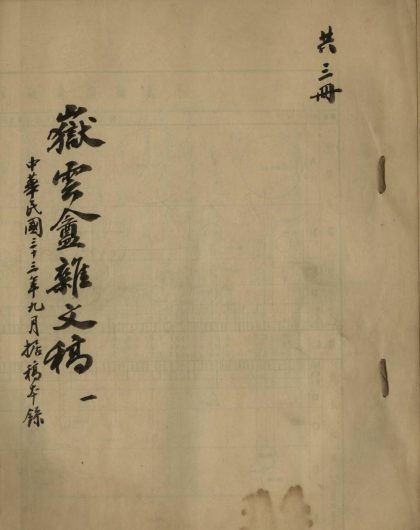 共三冊
嶽雲盦雜文稿 一
中華民國三十三年九月据稿本錄